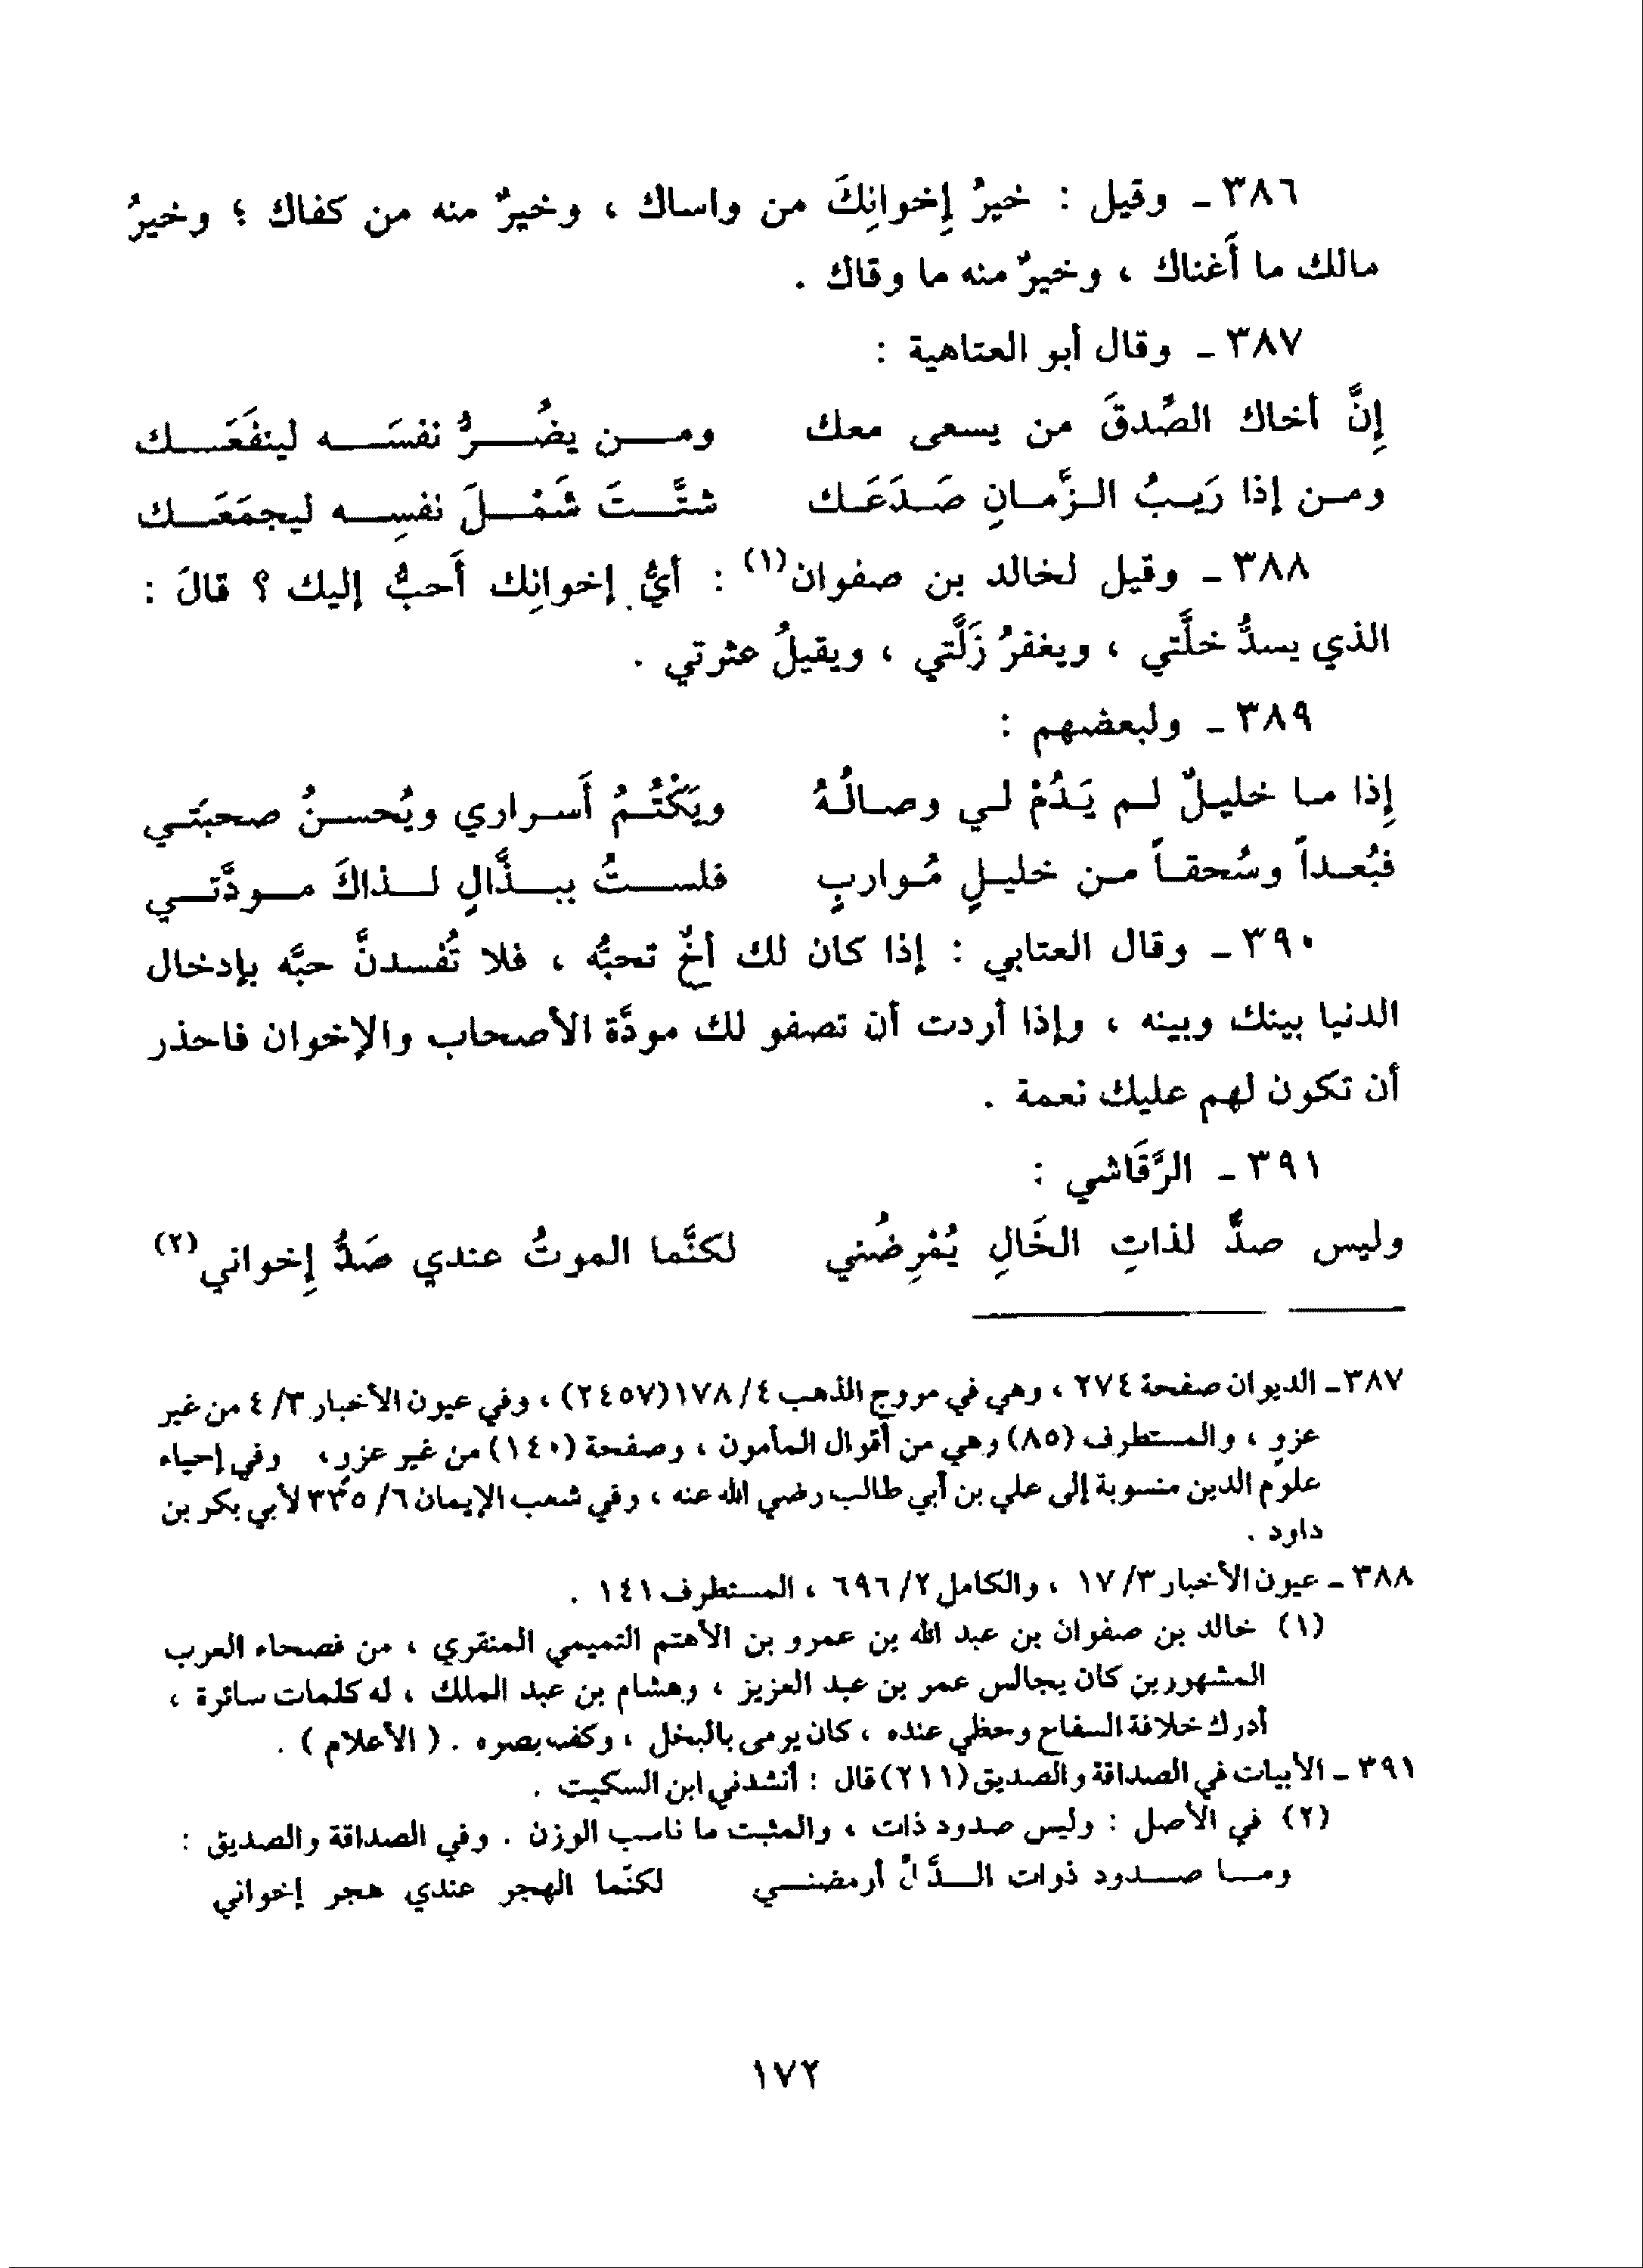 ٣٨٦ - وقيل : خيرُ إِخوانِكَ من واساك ، وخيرٌ منه من كفاك ؛ وخيرُ
مالك ما أَغناك ، وخيرٌ منه ما وقاك .
٣٨٧ - وقال أبو العتاهية :
إِنَّ أخاك الصِّدقَ من يسعى معك ومن يضُرُّ نفسَه لينفَعَك
ومن إذا رَيبُ الزَّمانِ صَدَعَك شتَّتَ شَمْلَ نفسِه ليجمَعَك
٣٨٨ - وقيل لخالد بن صفوان(١) : أيُّ إخوانِك أَحبُّ إليك ؟ قالَ :
الذي يسدُّ خلَّتي ، ويغفرُ زَلَّتي ، ويقيلُ عثرتي .
٣٨٩ - ولبعضهم :
إِذا ما خليلٌ لم يَدُمْ لي وصالُهُ ويَكْتُمُ أَسراري ويُحسنُ صحبَتي
فبُعداً وسُحقاً من خليلٍ مُواربٍ فلستُ ببذَّالٍ لذاكَ مودَّتي
٣٩٠ - وقال العتابي : إذا كان لك أخٌ تحبُّه ، فلا تُفسدنَّ حبَّه بإدخال
الدنيا بينك وبينه ، وإذا أردت أن تصفو لك مودَّة الأصحاب والإخوان فاحذر
أن تكون لهم عليك نعمة .
٣٩١ - الرَّقَاشي :
وليس صدٌّ لذاتِ الخَالِ يُمْرِضُني لكنَّما الموتُ عندي صَدُّ إِخواني(٢)
٣٨٧ - الديوان صفحة ٢٧٤ ، وهي في مروج الذهب ٤/ ١٧٨ (٢٤٥٧) ، وفي عيون الأخبار ٣/ ٤ من غير
عزوٍ ، والمستطرف (٨٥) وهي من أقوال المأمون ، وصفحة (١٤٠) من غير عزوٍ ، وفي إحياء
علوم الدين منسوبة إلى علي بن أبي طالب رضي الله عنه ، وفي شعب الإيمان ٦/ ٣٣٥ لأبي بكر بن
داود .
٣٨٨ - عيون الأخبار ٣/ ١٧ ، والكامل ٢/ ٦٩٦ ، المستطرف ١٤١ .
(١) خالد بن صفوان بن عبد الله بن عمرو بن الأهتم التميمي المنقري ، من فصحاء العرب
المشهورين كان يجالس عمر بن عبد العزيز ، وهشام بن عبد الملك ، له كلمات سائرة ،
أدرك خلافة السفاح وحظي عنده ، كان يرمى بالبخل ، وكف بصره . ( الأعلام ) .
٣٩١ - الأبيات في الصداقة والصديق (٢١١) قال : أنشدني ابن السكيت .
(٢) في الأصل : وليس صدود ذات ، والمثبت ما ناسب الوزن . وفي الصداقة والصديق :
وما صدود ذوات الدَّلِّ أرمضني لكنّما الهجر عندي هجر إخواني
١٧٢